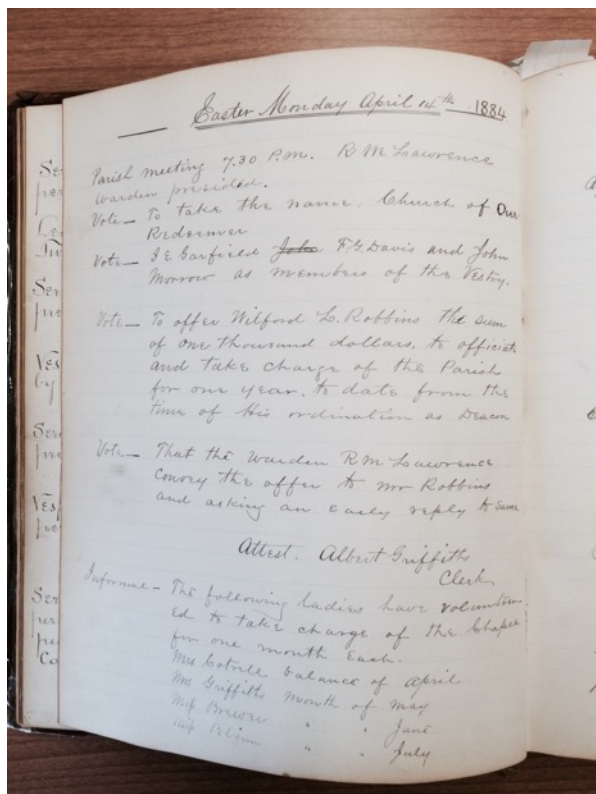 Easter Monday April 14th 1884
Parish meeting 7.30 P.M. R M Lawrence
Warden presided.
Vote— To take the name. Church of Our
Redeemer
Vote— I E Garfield John F. G. Davis and John
Morrow as members of the Vestry.
Vote— To offer Wilford L. Robbins the sum
of one thousand dollars. to officiate
and take charge of the Parish
for one year. to date from the
time of His ordination as Deacon
Vote— That the Warden R M Lawrence
convey the offer to Mr Robbins
and asking an Early reply to same
Attest. Albert Griffiths
Clerk
Informal— The following ladies have volunteer
Ed to take charge of the Chapel
for one month Each.
Mrs Cotrell balance of April
Mrs Griffiths month of May
Miss Brewer " " June
Miss " " July
Ser
per
Ser
pre
Ves
by
Ser
pre
Vesp
pre
Ser
per
Co